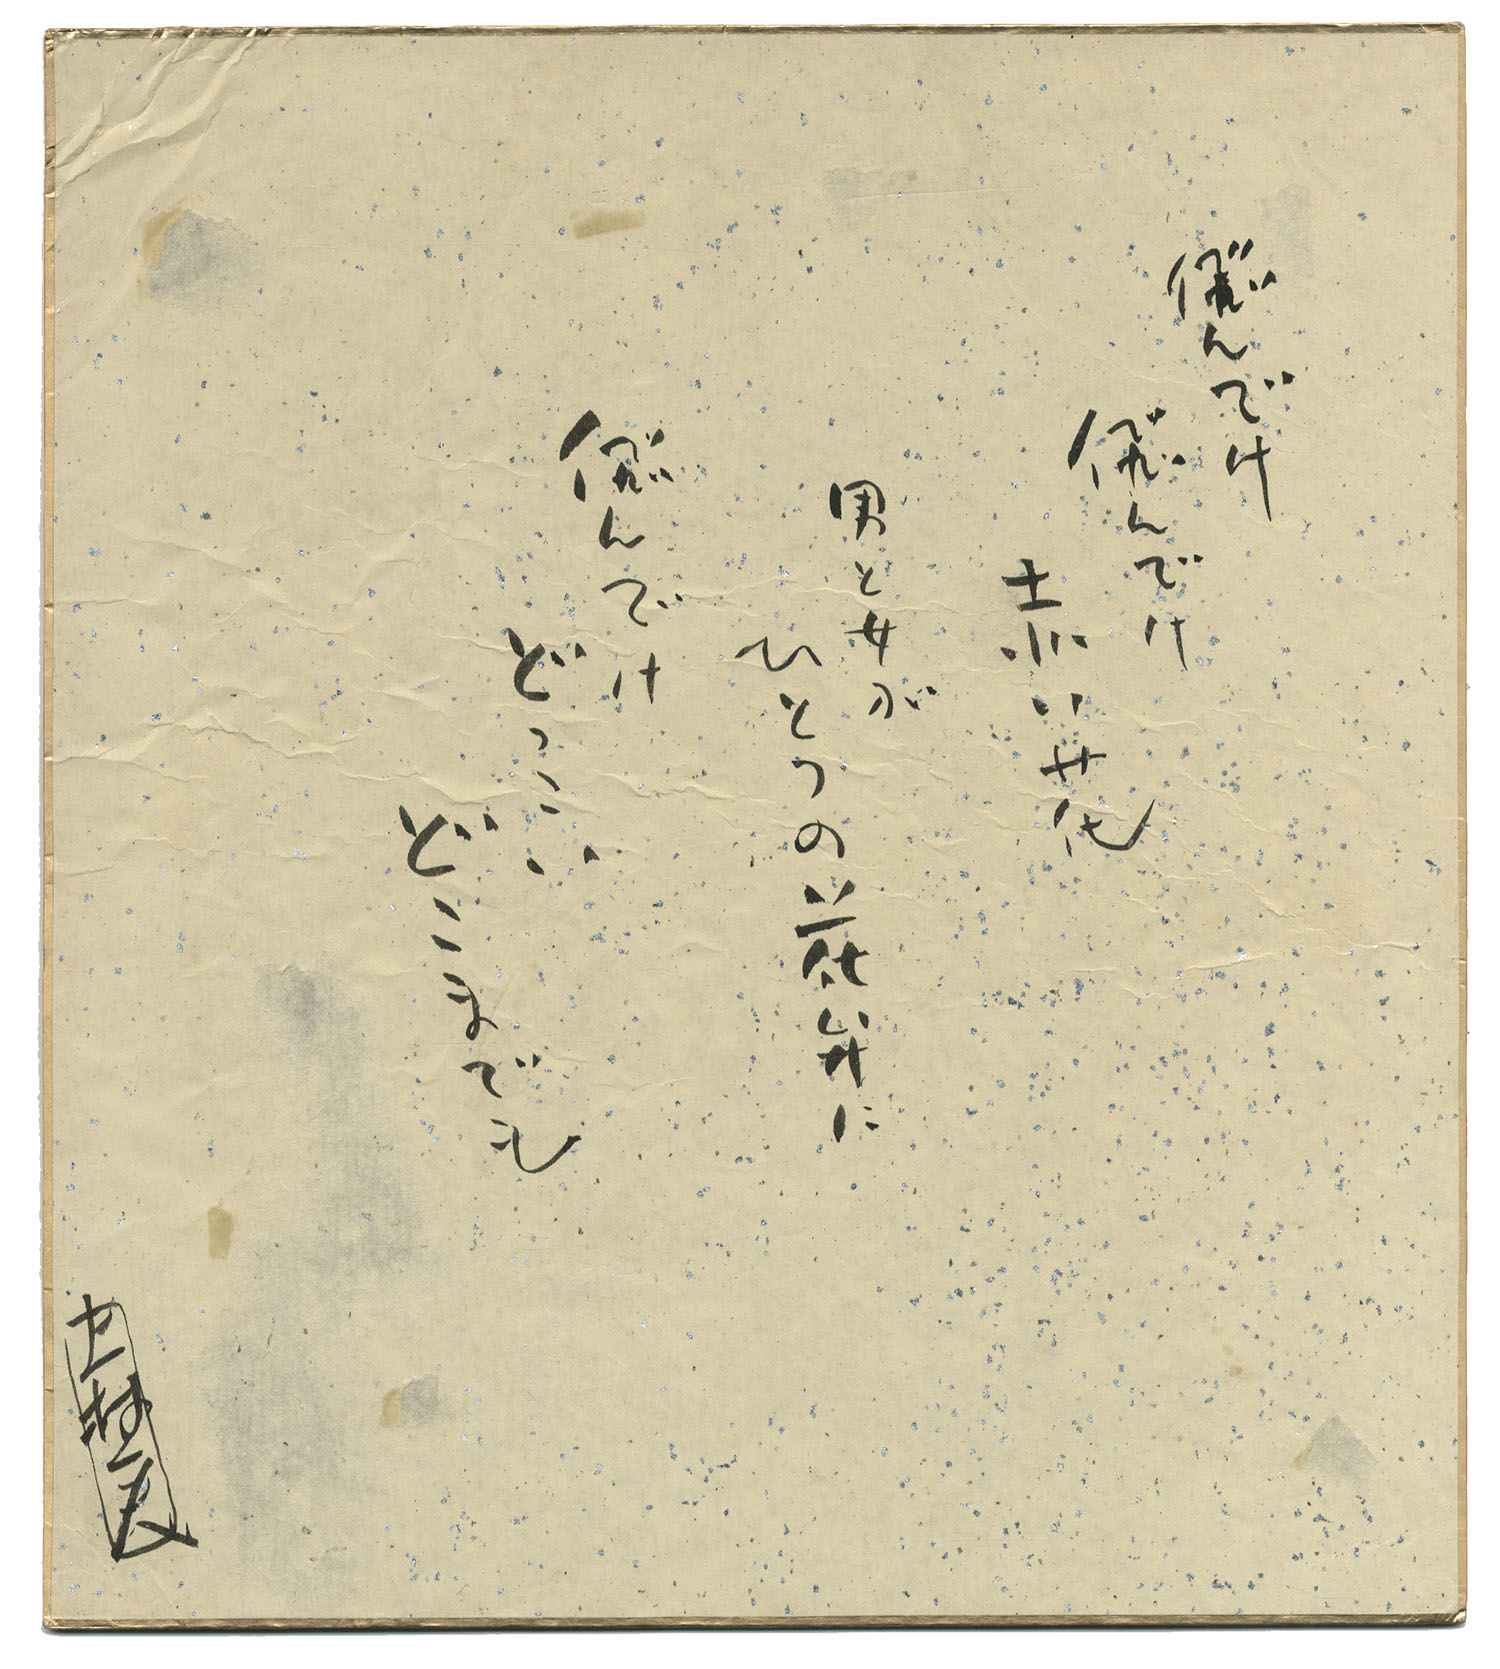 飛んでけ
飛んでけ
赤い花
男と女が
ひとつの花弁に
飛んでけ
どっこい
どこまでも
上村一夫